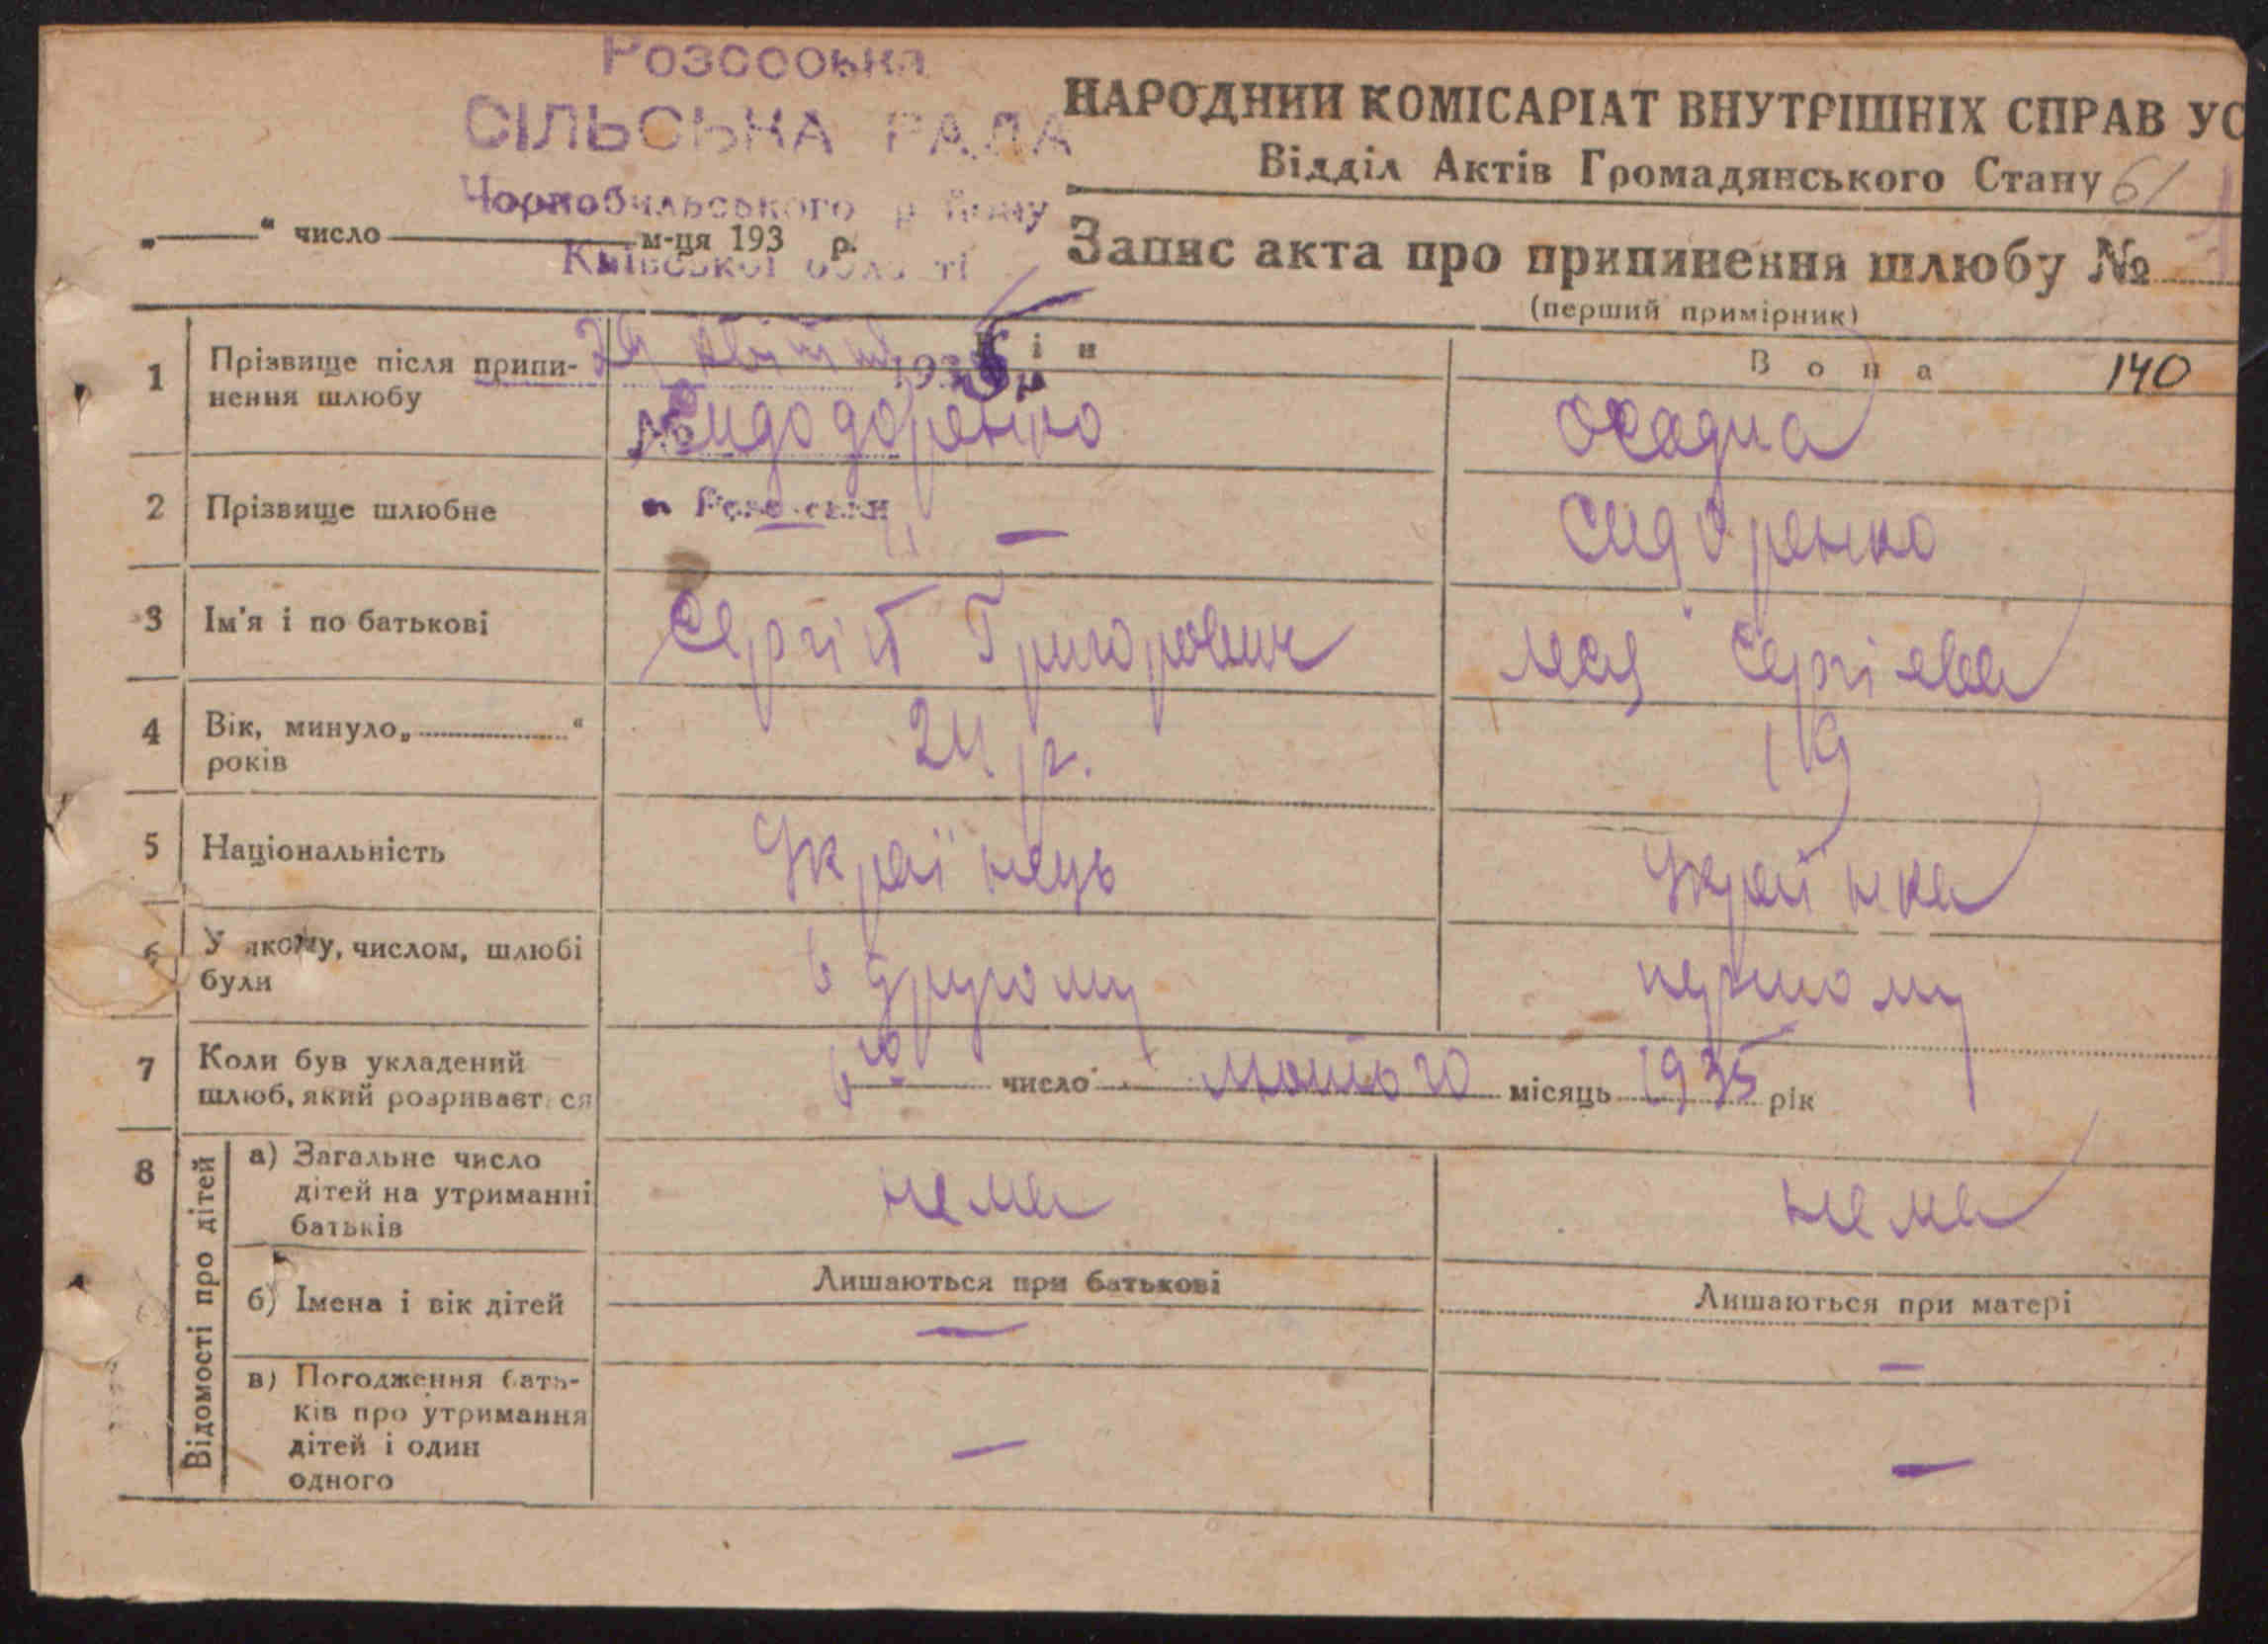 Розсоська
СІЛЬСЬКА РАДА
Чорнобильського району
Київської області
НАРОДНИЙ КОМІСАРІАТ ВНУТРІШНІХ СПРАВ УС
Відділ Актів Громадянського Стану 61
„ “ число м-ця 193 р.
Запис акта про припинення шлюбу №
(перший примірник)
Він Вона 140
1 Прізвище після припинення шлюбу
193
№ Сидодоренко Осадча
2 Прізвище шлюбне
— Сидоренко
3 Ім'я і по батькові Сергій Григорович Сергієва
4 Вік, минуло „ “ років 24 р. 19
5 Національність Українець Українка
6 У якому, числом, шлюбі були в другому першому
7 Коли був укладений шлюб, який розривається 6го число лютого місяць 1935 рік
8 Відомості про дітей
а) Загальне число дітей на утриманні батьків нема нема
б) Імена і вік дітей Лишаються при батькові Лишаються при матері
— —
в) Погодження батьків про утримання дітей і один одного — —